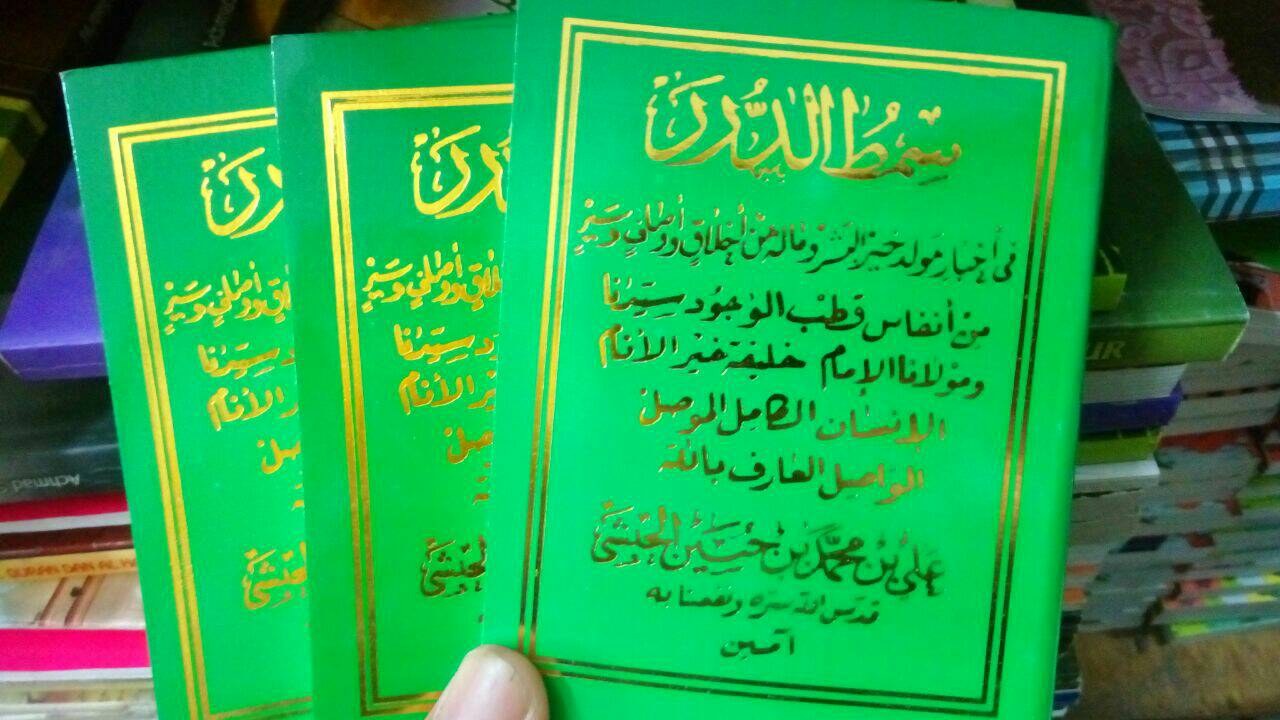 سِمْطُ الدُّرَر
فى أخبار مولد خير البشر وماله من أخلاق وأوصاف وسير
من أنفاس قطب الوجود سيدنا
ومولانا الإمام خليفة خير الأنام
الإنسان الكامل الموصل
الواصل العارف بالله
على بن محمد بن حسين الحبشى
قدس الله سره ونفعنا به
آمين
Achmad
QURAN DAN AL HA
UR